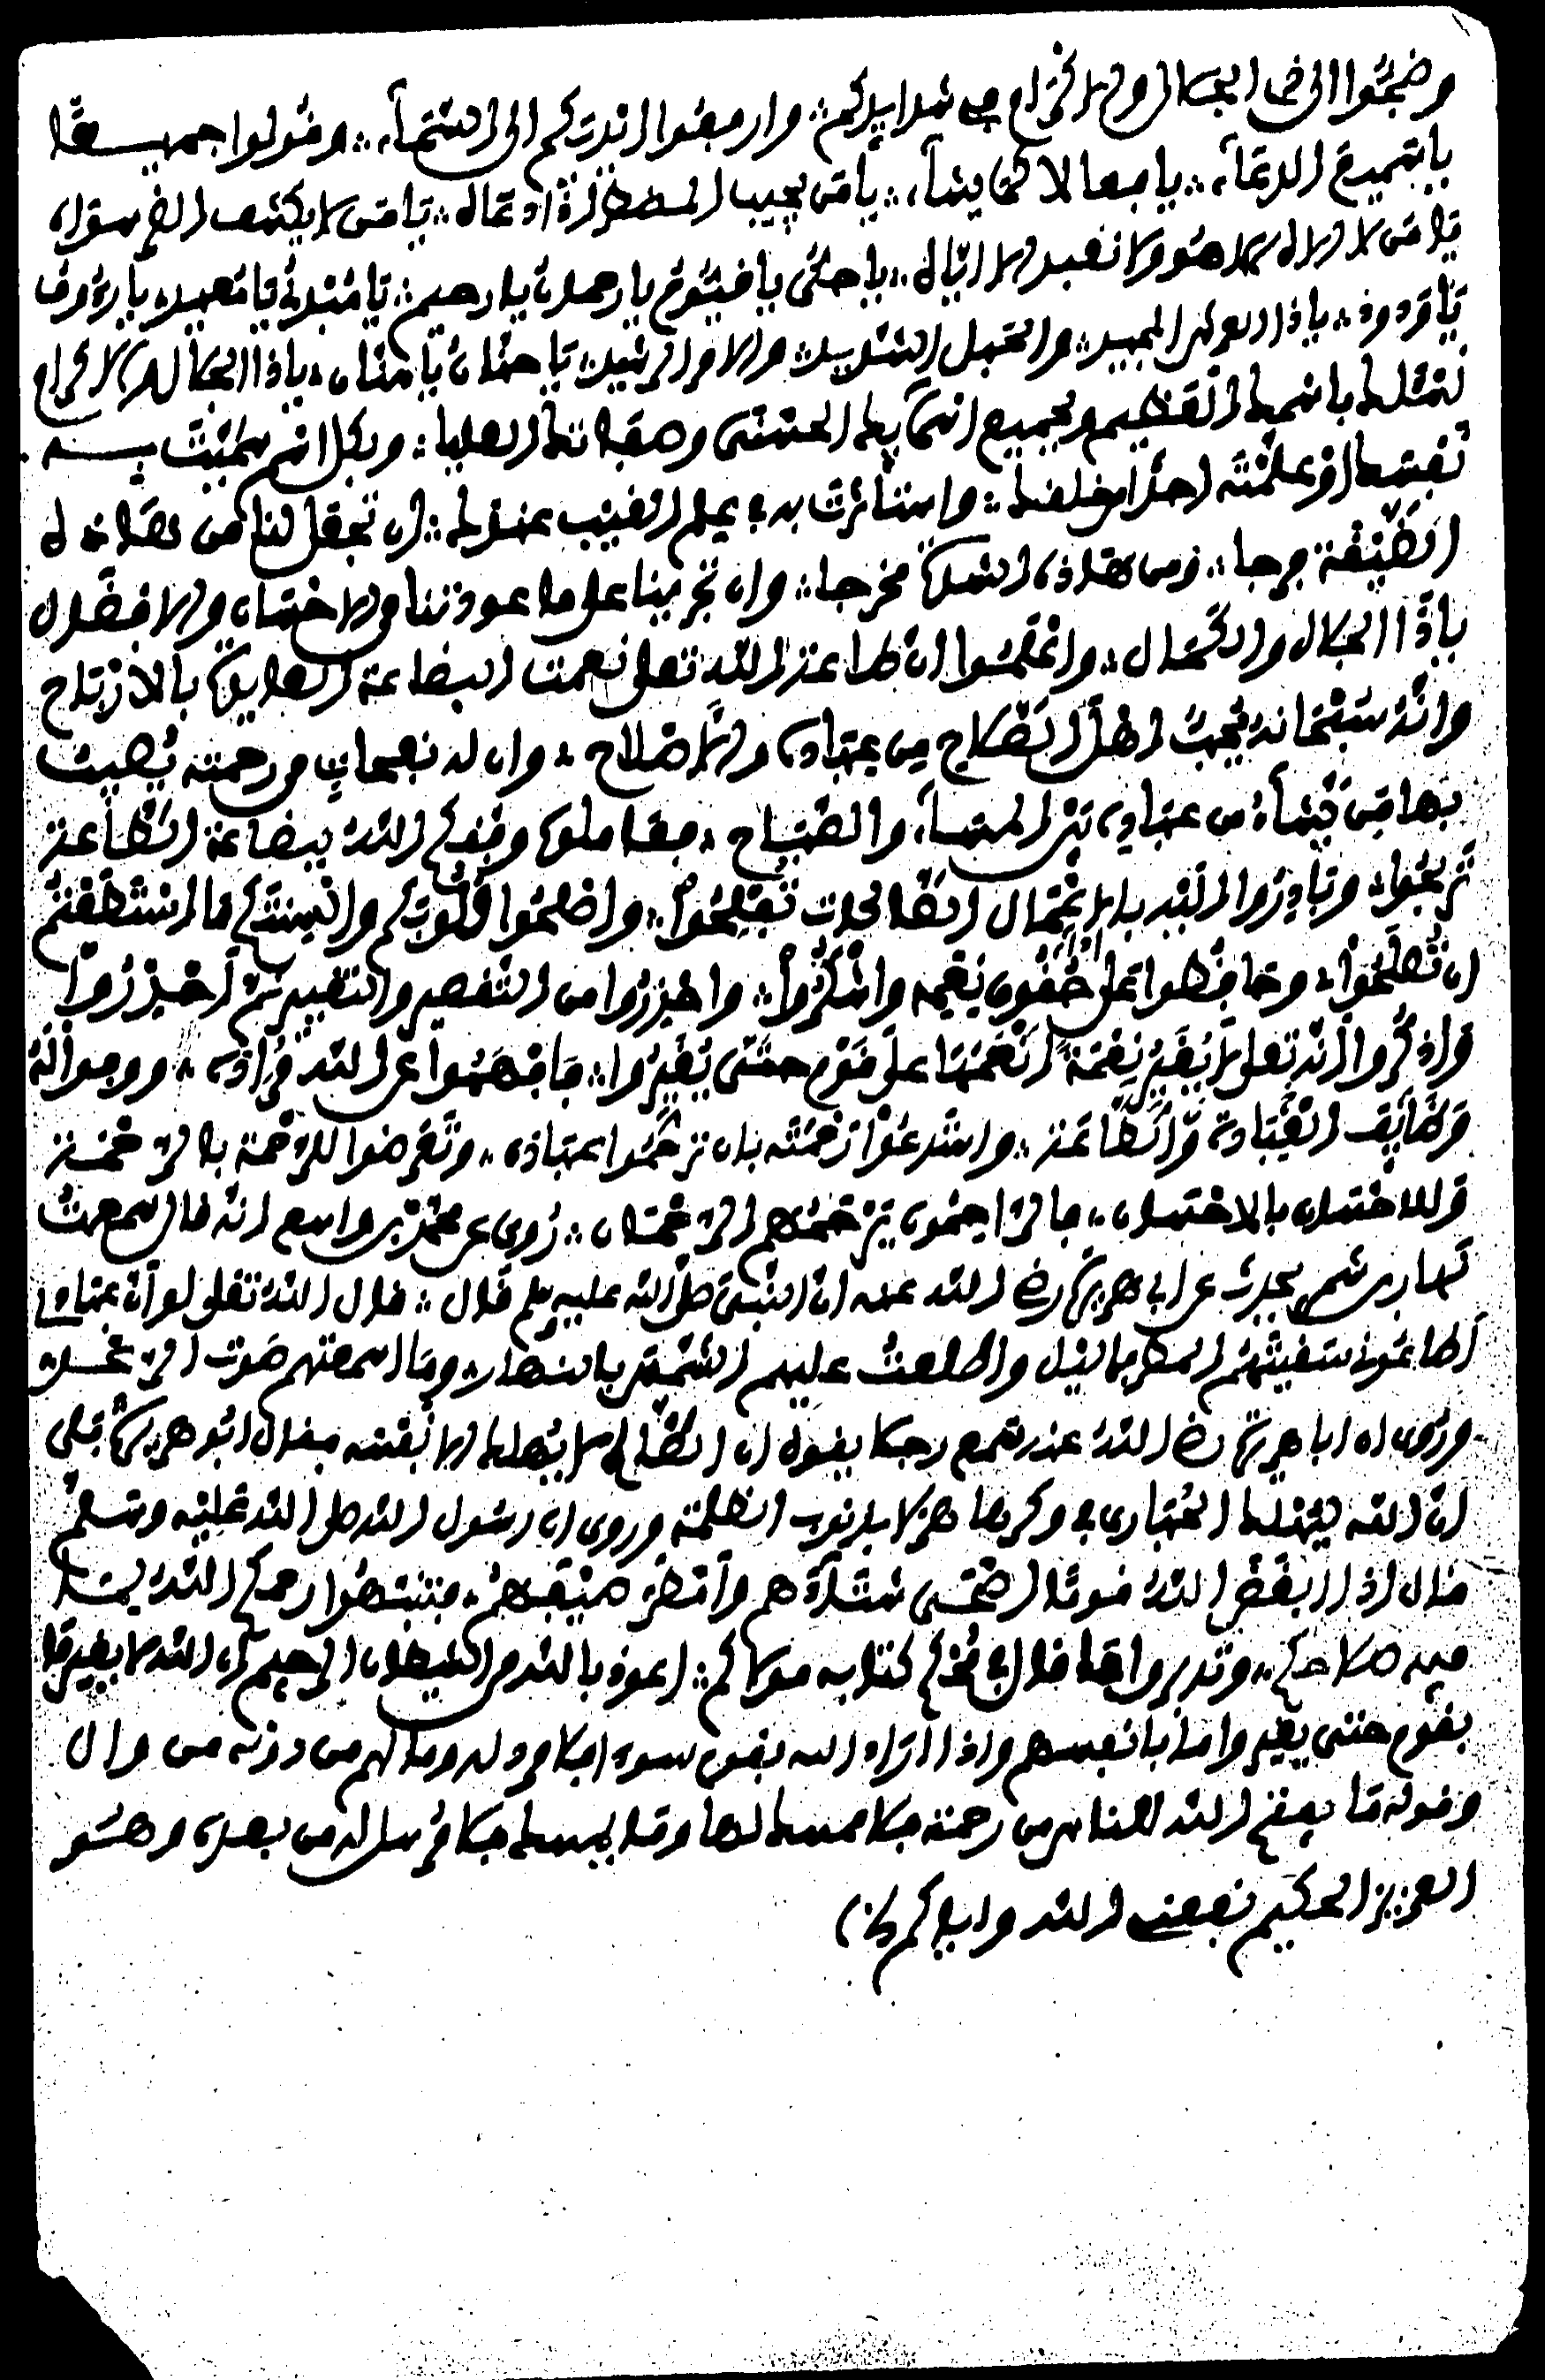 وضجوا الى ذي الجلال والاكرام في شدايدكم وارفعوا ايديكم الى السماء وقولوا جميعا
يا سميع الدعاء يا فعالا لما يشاء يا من يجيب المضطر اذا دعاه يا من لا يكشف الضر سواه
يا من لا اله الا هو ولا نعبد الا اياه يا حي يا قيوم يا رحمان يا رحيم يا مبدئ يا معيد يا رءوف
يا ودود يا ذا العرش المجيد والحبل الشديد والامر الرشيد يا حنان يا منان يا ذا الجلال والاكرام
نسئلك باسمك العظيم وبجميع اسمايك الحسنى وصفاتك العليا وبكل اسم سميت به
نفسك او علمته احدا من خلقك واستاثرت به في علم الغيب عندك ان تجعل لنا من هذه
الضيقة فرجا ومن هذه الشدة مخرجا وان تجرينا على ما عودتنا من الاحسان والافضال
يا ذا الجلال والكمال واعلموا ان طاعة الله تعلى نعمت البضاعة العايدة بالارباح
وانه سبحانه يحب اهل الصلاح من عباده والاصلاح وان له نفحات من رحمته يصيب
بها من يشاء من عباده بين المساء والصباح فعاملوا وفقكم الله ببضاعة الطاعة
تربحوا وبادروا اليه بالاعمال الصالحات تفلحوا واصلحوا قلوبكم والسنتكم ما استطعتم
ان تصلحوا وحافظوا على حقوق نعمه واشكروا واحذروا من التقصير والتغيير ثم احذروا
واذكروا ان الله تعلى لا يغير نعمة انعمها على قوم حتى يغيروا فافهموا عن الله مراده ووفوا له
وظايف العبادة والطاعة واستدعوا رحمته بان ترحموا عباده وتعرضوا للرحمة بالرحمة
وللاحسان بالاحسان فالراحمون يرحمهم الرحمان روي عن محمد بن واسع انه قال سمعت
بن شمير يحدث عن ابي هريرة رضي الله عنه ان النبي صلى الله عليه وسلم قال قال الله تعلى لو ان عبادي
اطاعوني سقيتهم المطر بالليل واطلعت عليهم الشمس بالنهار وما اسمعتهم صوت الرعد
وروي ان ابا هريرة رضي الله عنه سمع رجلا يقول ان الظالم لا يهلك الا نفسه فقال ابو هريرة بلى
ان الله ليهلك الحبارى في وكرها هزلا بذنوب الظلمة وروي ان رسول الله صلى الله عليه وسلم
قال اذا ابغض الله قوما اضحى شتاءهم وامطر صيفهم فتنبهوا رحمكم الله لما
فيه صلاحكم وتدبروا ما قال في محكم كتابه مولاكم اعوذ بالله من الشيطان الرجيم ان الله لا يغير ما
بقوم حتى يغيروا ما بانفسهم واذا اراد الله بقوم سوءا فلا مرد له وما لهم من دونه من وال
وقوله ما يفتح الله للناس من رحمة فلا ممسك لها وما يمسك فلا مرسل له من بعده وهو
العزيز الحكيم نفعني الله واياكم